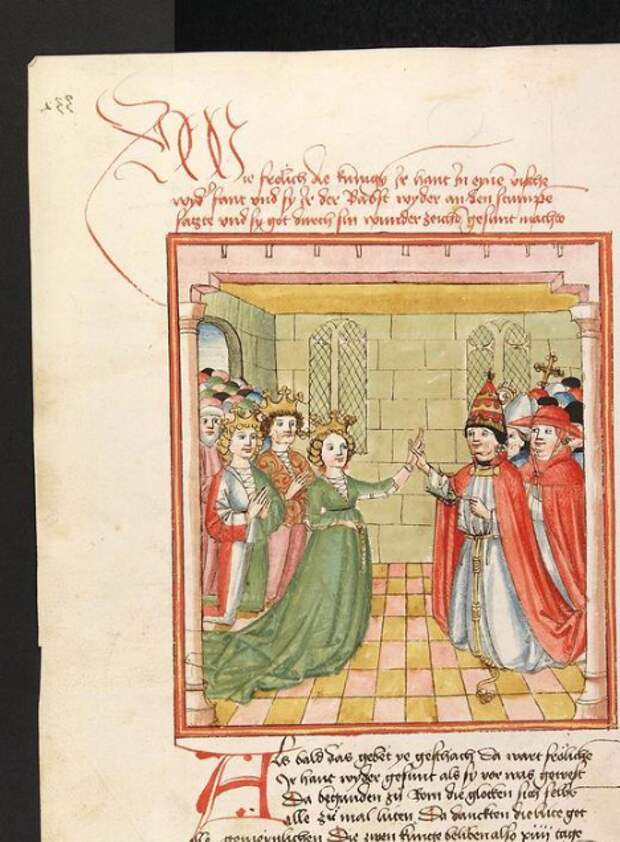 Wie frölich die künigin ir hant in eyme vische
wyd' fant vnd sy ir der Babst wyder an den stumpe
satzte vnd sy got durch sin wunder zeiche gesunt machte
Als bald das gebet ye geschach Da wart fröliche
Ir hant wyder gesunt als sy vor was gewest
Da begunden zü Rom die glocken sich selbe
alle zü mal luten Da danckten die lute got
alle gemeinlichen Die zwen künige beliben also xiiij tage